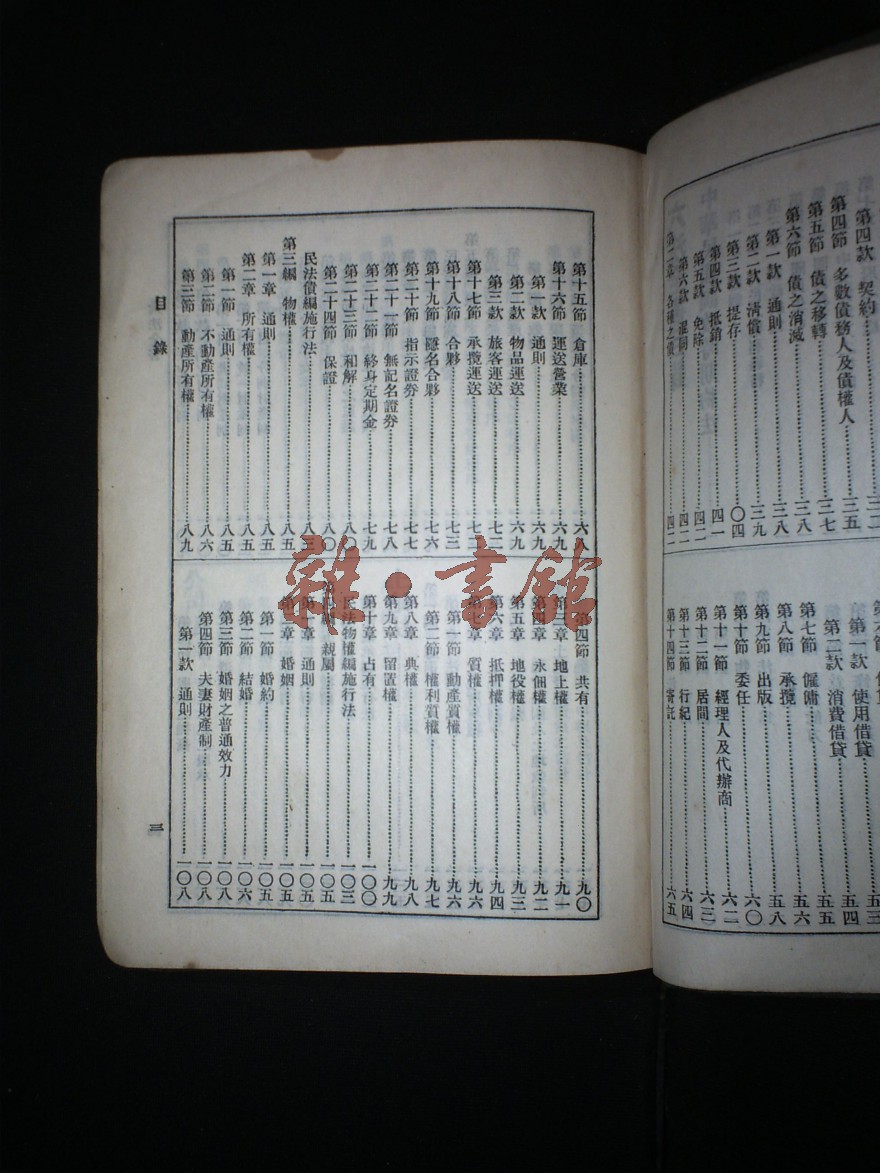 第四款 契約……三二
第四節 多數債務人及債權人……三五
第五節 債之移轉……三七
第六節 債之消滅……三八
第一款 通則……三八
第二款 清償……三九
第三款 提存……〇四
第四款 抵銷……四一
第五款 免除……四二
第六款 混同……四二
第二章 各種之債……四二
第一款 使用借貸……五三
第二款 消費借貸……五四
第七節 僱傭……五五
第八節 承攬……五六
第九節 出版……五八
第十節 委任……六〇
第十一節 經理人及代辦商……六二
第十二節 居間……六三
第十三節 行紀……六四
第十四節 寄託……六五
第十五節 倉庫……六八
第十六節 運送營業……六九
第一款 通則……六九
第二款 物品運送……六九
第三款 旅客運送……七二
第十七節 承攬運送……七二
第十八節 合夥……七三
第十九節 隱名合夥……七六
第二十節 指示證券……七七
第二十一節 無記名證券……七八
第二十二節 終身定期金……七九
第二十三節 和解……八〇
第二十四節 保證……八〇
民法債編施行法……八三
第三編 物權……八五
第一章 通則……八五
第二章 所有權……八五
第一節 通則……八五
第二節 不動產所有權……八六
第三節 動產所有權……八九
第四節 共有……九〇
第三章 地上權……九一
第四章 永佃權……九二
第五章 地役權……九三
第六章 抵押權……九四
第七章 質權……九六
第一節 動產質權……九六
第二節 權利質權……九七
第八章 典權……九八
第九章 留置權……九九
第十章 占有……一〇〇
民法物權編施行法……一〇三
第四編 親屬……一〇五
第一章 通則……一〇五
第二章 婚姻……一〇五
第一節 婚約……一〇五
第二節 結婚……一〇六
第三節 婚姻之普通效力……一〇八
第四節 夫妻財產制……一〇八
第一款 通則……一〇八
目錄
三
雜·書館